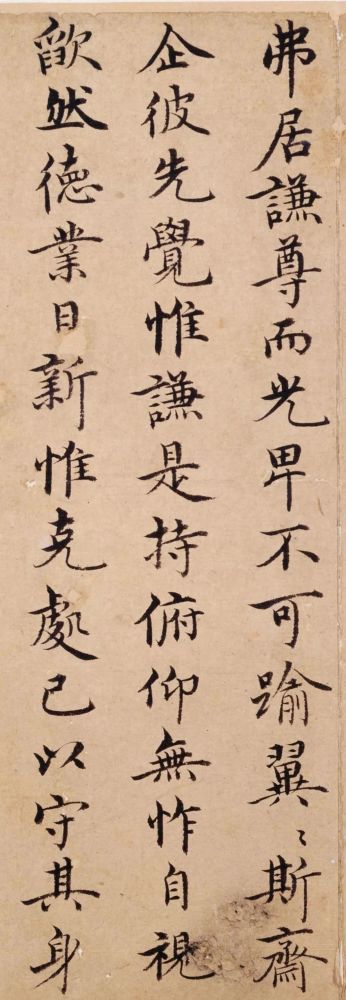 弗居謙尊而光卑不可踰翼〻斯齋
企彼先覺惟謙是持俯仰無怍自視
歉然德業日新惟克處己以守其身